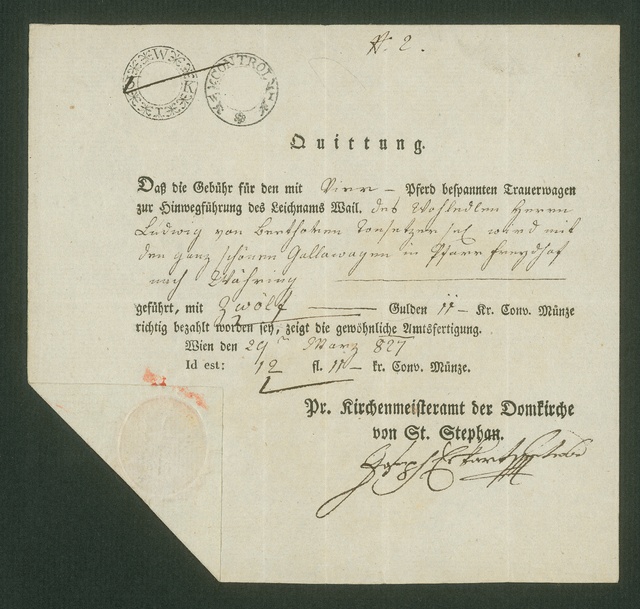 N. 2.
W K I
CONTROL
Quittung.
Daß die Gebühr für den mit Vier – Pferd bespannten Trauerwagen
zur Hinwegführung des Leichnams Wail. des Wohledlen Herrn
Ludwig von Beethoven Tonsetzer wird mit
den ganz schönen Gallawagen in Pfarr freydhof
nach Währing
geführt, mit Zwölf Gulden – Kr. Conv. Münze
richtig bezahlt worden sey, zeigt die gewöhnliche Amtsfertigung.
Wien den 29 März 827
Id est: 12 fl. – kr. Conv. Münze.
Pr. Kirchenmeisteramt der Domkirche
von St. Stephan.
Joseph